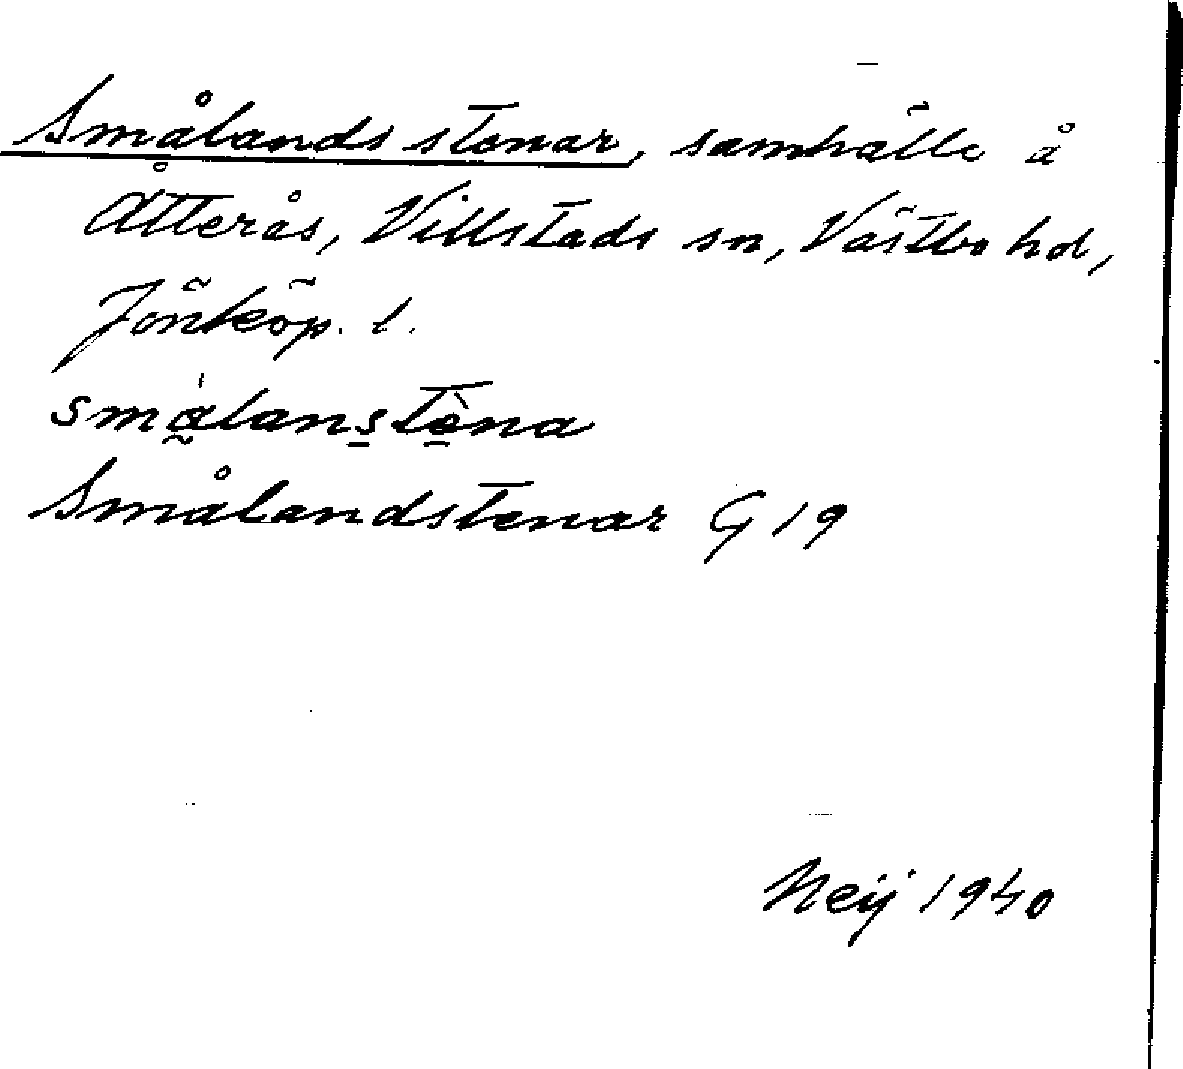 Smålands stenar, samhälle å
Åtterås, Villstads sn, Västbo hd,
Jönköp. l.
Smålandstenar G 19
Neij 1940